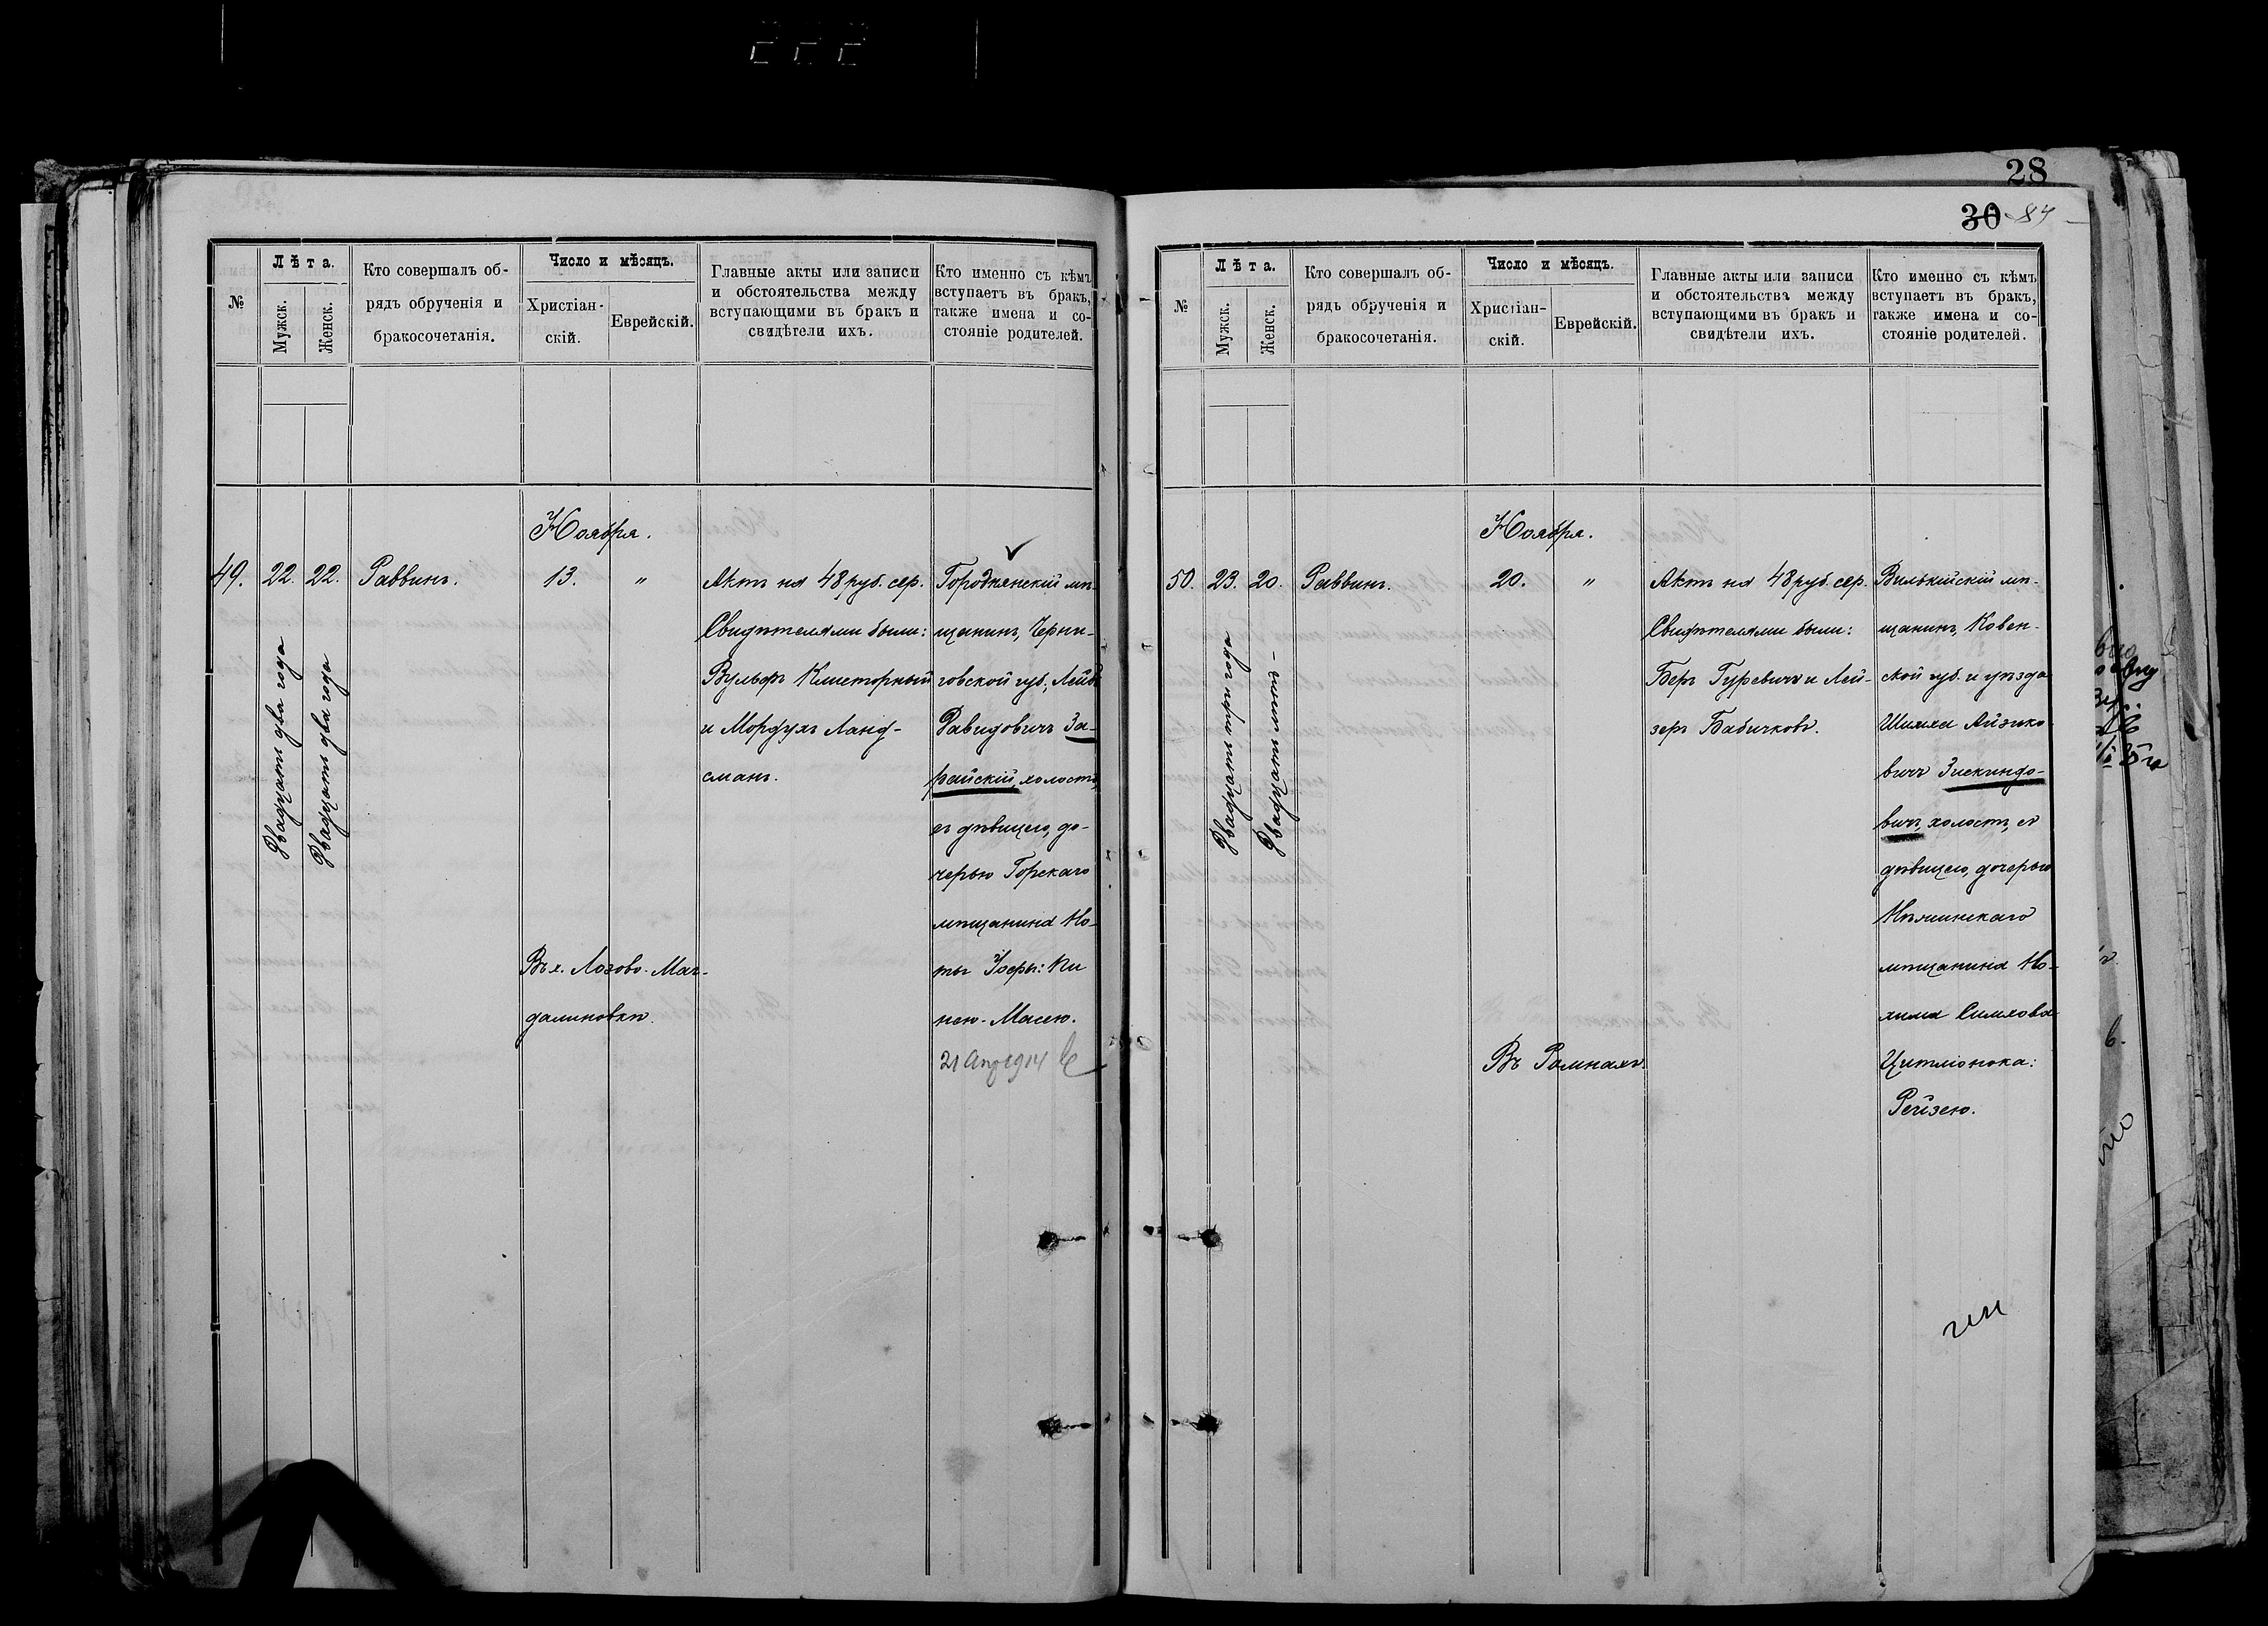 28
30 84
№
Лѣта.
Мужск.
Женск.
Кто совершалъ об-
рядъ обрученія и
бракосочетанія.
Число и мѣсяцъ.
Христіан-
скій.
Еврейскій.
Главные акты или записи
и обстоятельства между
вступающими въ бракъ и
свидѣтели ихъ.
Кто именно съ кѣмъ
вступаетъ въ бракъ,
также имена и со-
стояніе родителей.
Ноября.
49.
22.
22.
Двадцать два года
Двадцать два года
Раввинъ.
13.
"
Въ х. Лозово-Маг-
далиновкѣ.
Актъ на 48 руб. сер.
Свидѣтелями были:
Вульфъ Клисторный
и Мордухъ Ланд-
сманъ.
Городнянскій мѣ-
щанинъ, Черни-
говской губ., Лейба
Давидовичъ За-
райскій, холостъ,
съ дѣвицею, до-
черью Горскаго
мѣщанина Но-
ты
нею-Масею.
21 Апр 1914
№
Лѣта.
Мужск.
Женск.
Кто совершалъ об-
рядъ обрученія и
бракосочетанія.
Число и мѣсяцъ.
Христіан-
скій.
Еврейскій.
Главные акты или записи
и обстоятельства между
вступающими въ бракъ и
свидѣтели ихъ.
Кто именно съ кѣмъ
вступаетъ въ бракъ,
также имена и со-
стояніе родителей.
Ноября.
50.
23.
20.
Двадцать три года
Двадцать лѣтъ
Раввинъ.
20.
"
Въ Ромнахъ.
Актъ на 48 руб. сер.
Свидѣтелями были:
Беръ Гуревичъ и Лей-
зеръ Бабичковъ.
Вилькійскій мѣ-
щанинъ, Ковен-
ской губ. и уѣзда
Шимха Айзико-
вичъ Зискиндо-
вичъ, холостъ, съ
дѣвицею, дочерью
Нѣжинскаго
мѣщанина Но-
хима Симхова
Цитлионока:
Рейзею.